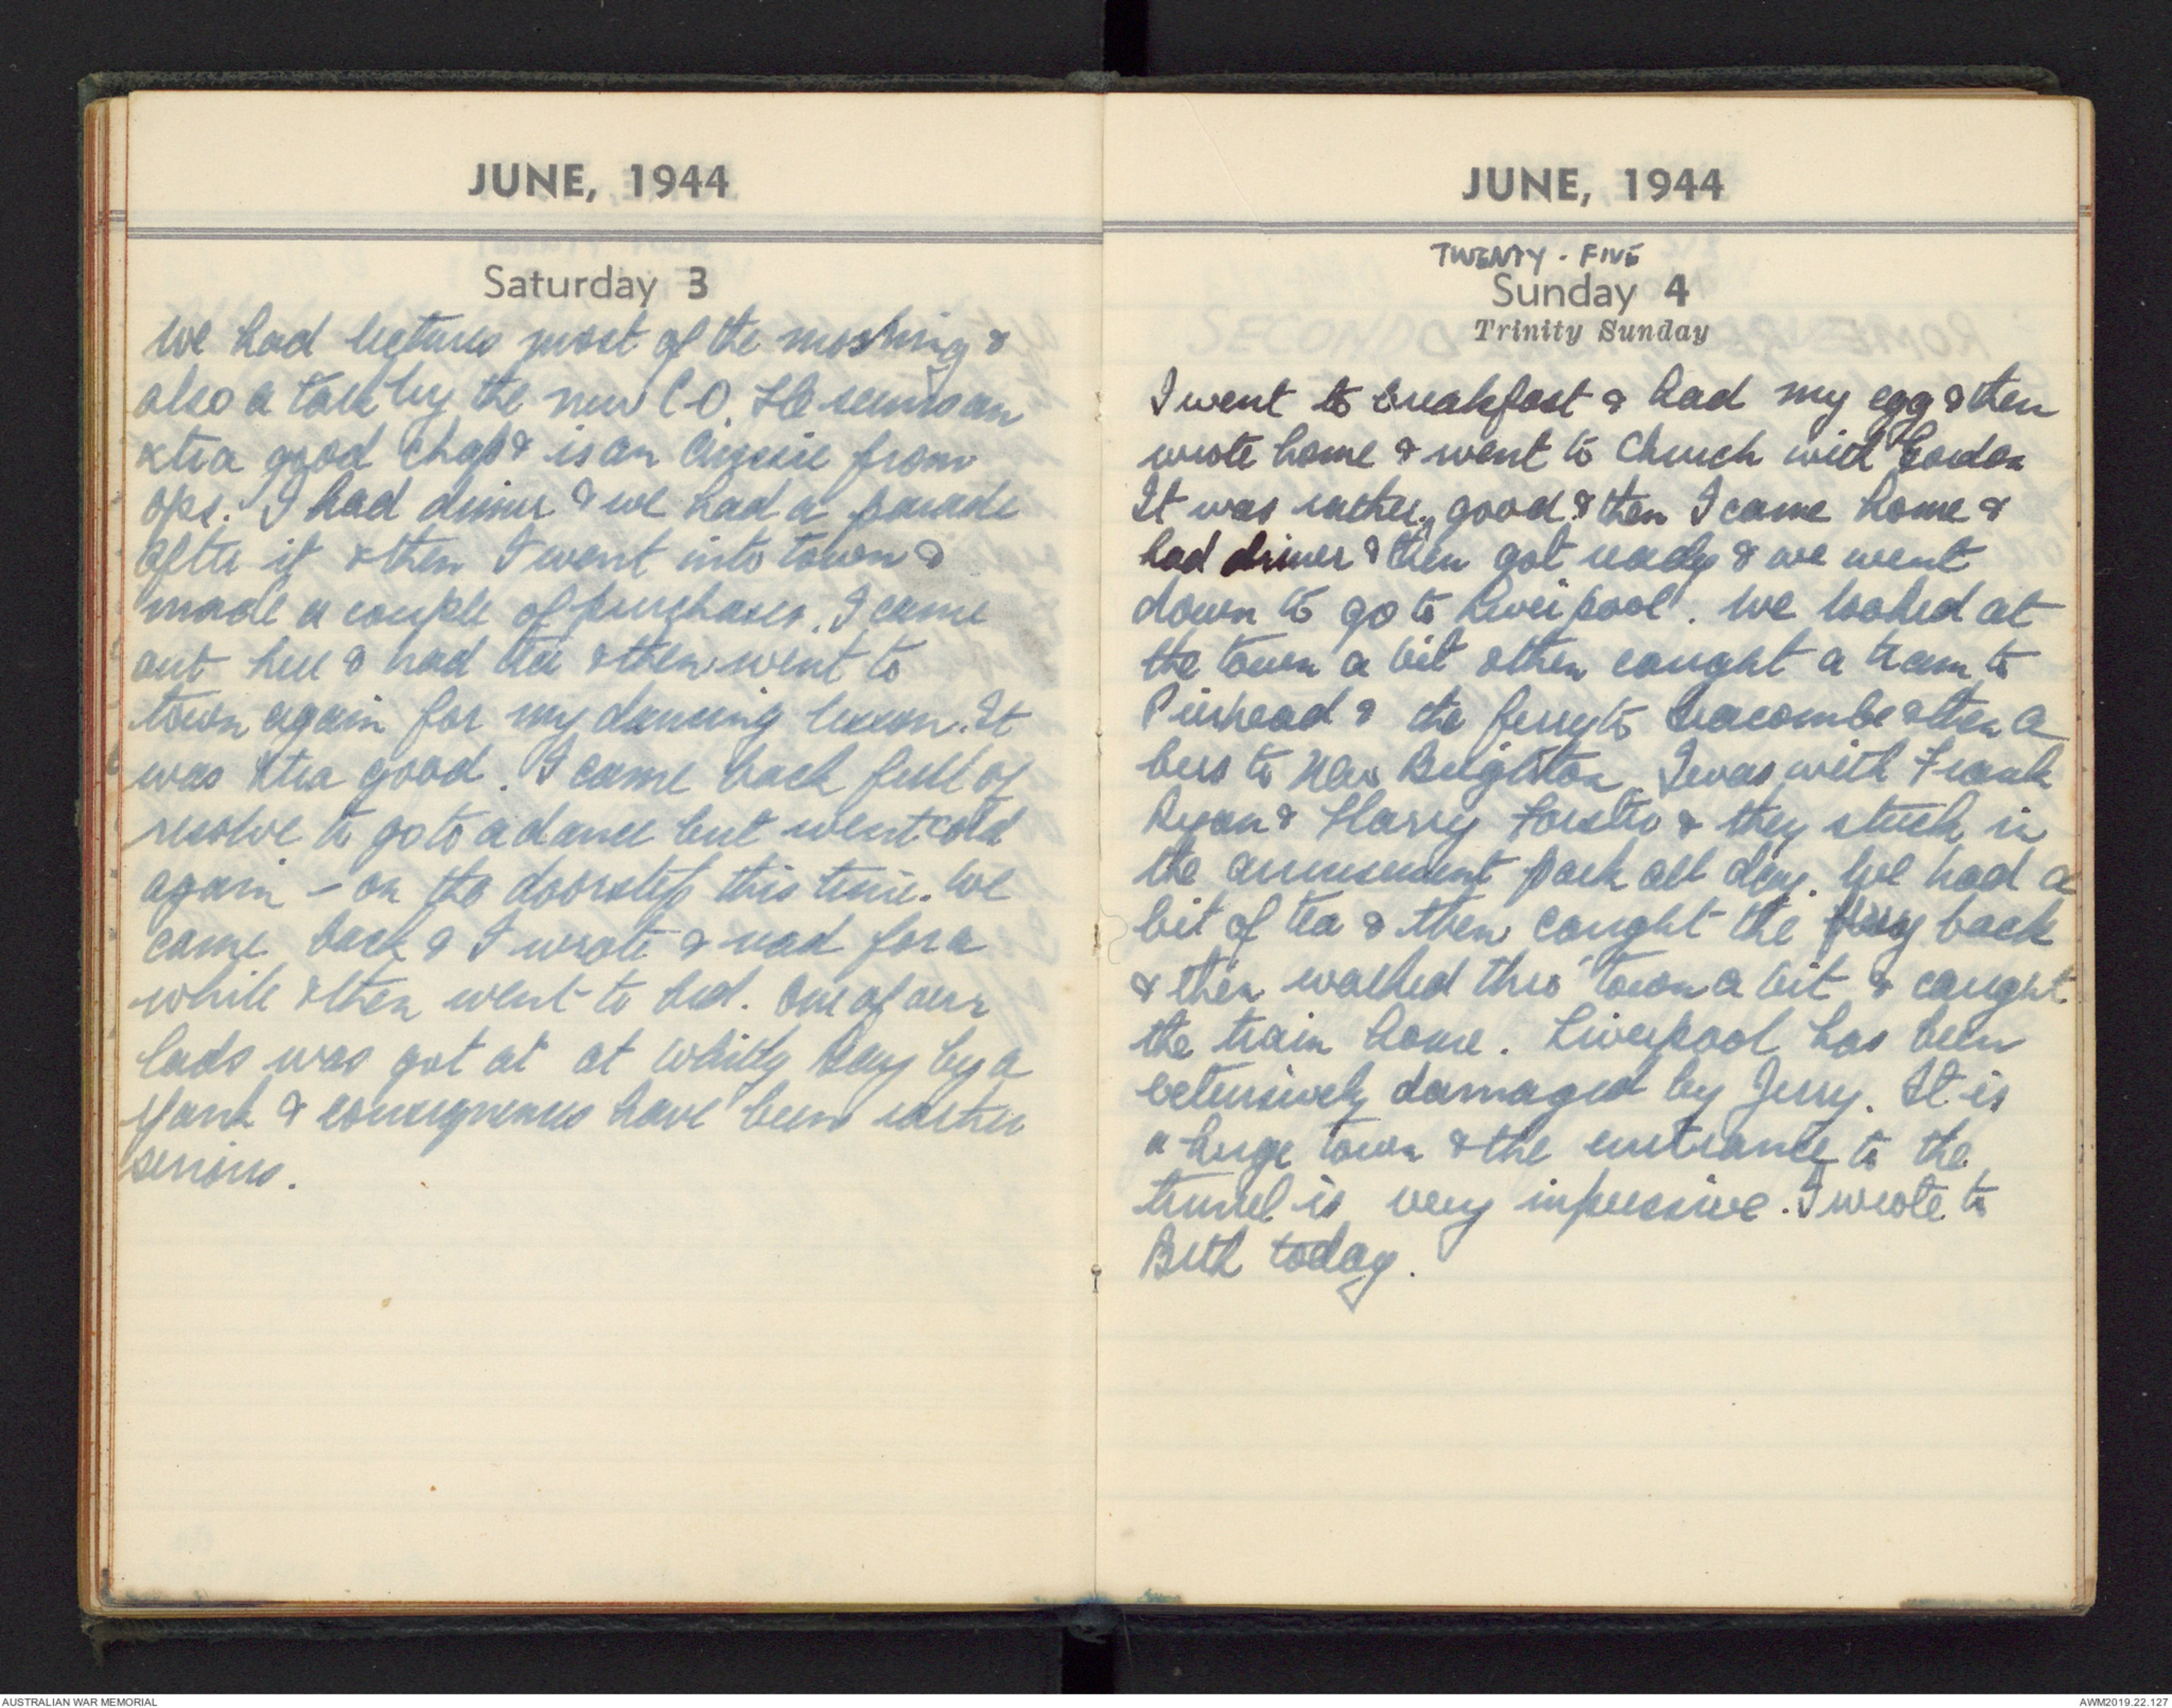 JUNE, 1944
Saturday 3
We had lectures most of the morning &
also a talk by the new C.O. He seems an
xtra good chap & is an Aussie from
ops. I had dinner & we had a parade
after it & then I went into town &
made a couple of purchases. I came
out here & had tea & then went to
town again for my dancing lesson. It
was xtra good. I came back full of
resolve to go to a dance but went cold
again - on the doorstep this time. We
came back & I wrote & read for a
while & then went to bed. One of our
lads was got at at Whitly Bay by a
Yank & consequences have been rather
serious.
JUNE, 1944
TWENTY - FIVE
Sunday 4
Trinity Sunday
I went to breakfast & had my egg & then
wrote home & went to Church with Gordon
It was rather good & then I came home &
had dinner & then got ready & we went
down to go to Liverpool. We looked at
the town a bit & then caught a tram to
Pierhead & the ferry to Seacombe & then a
bus to New Brighton. I was with Frank
Ryan & Harry & they stuck in
the amusement park all day. We had a
bit of tea & then caught the ferry back
& then walked thro' town a bit & caught
the train home. Liverpool has been
extensively damaged by Jerry. It is
a huge town & the entrance to the
tunnel is very impressive. I wrote to
Beth today.
AUSTRALIAN WAR MEMORIAL
AWM2019.22.127